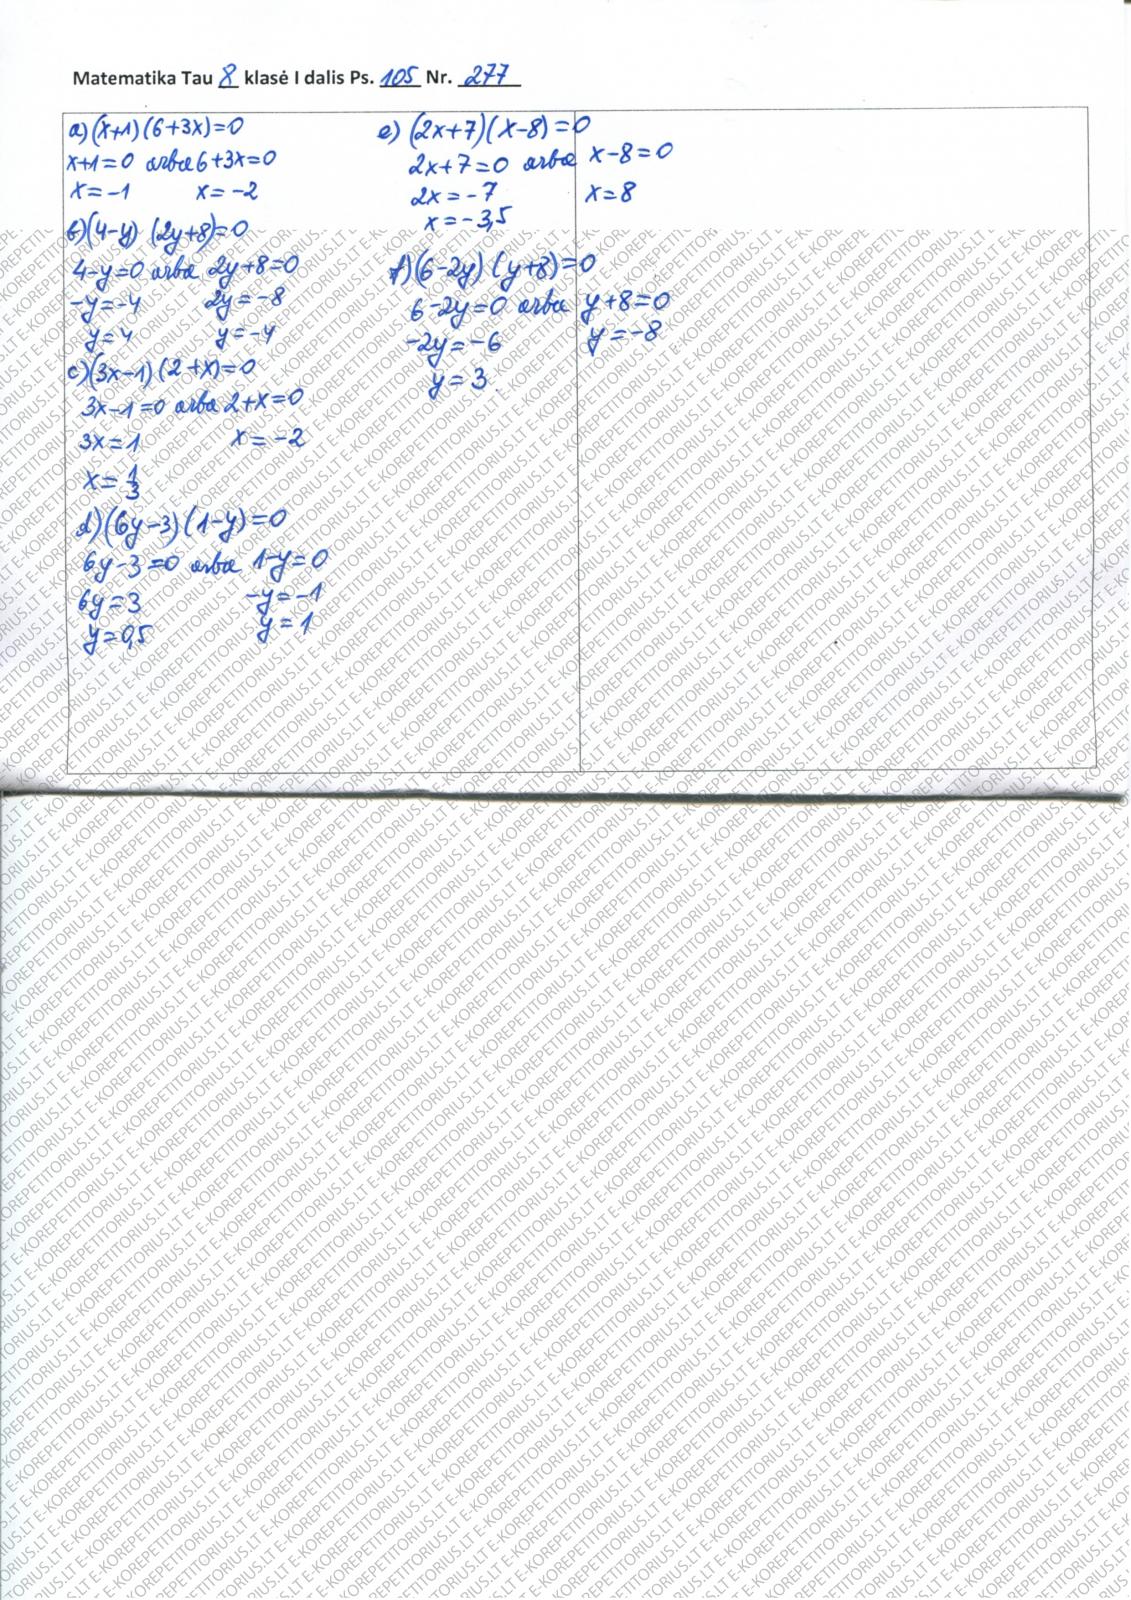 Matematika Tau 8 klasė I dalis Ps. 105 Nr. 277
a) (x+1)(6+3x)=0
x+1=0 arba 6+3x=0
x=-1 x=-2
b) (4-y) (2y+8)=0
4-y=0 arba 2y+8=0
-y=-4 2y=-8
y=4 y=-4
c) (3x-1)(2+x)=0
3x-1=0 arba 2+x=0
3x=1 x=-2
x=1/3
d) (6y-3)(1-y)=0
6y-3=0 arba 1-y=0
6y=3 -y=-1
y=0,5 y=1
e) (2x+7)(x-8)=0
2x+7=0 arba x-8=0
2x=-7 x=8
x=-3,5
f) (6-2y) (y+8)=0
6-2y=0 arba y+8=0
-2y=-6 y=-8
y=3
E-KOREPETITORIUS.LT